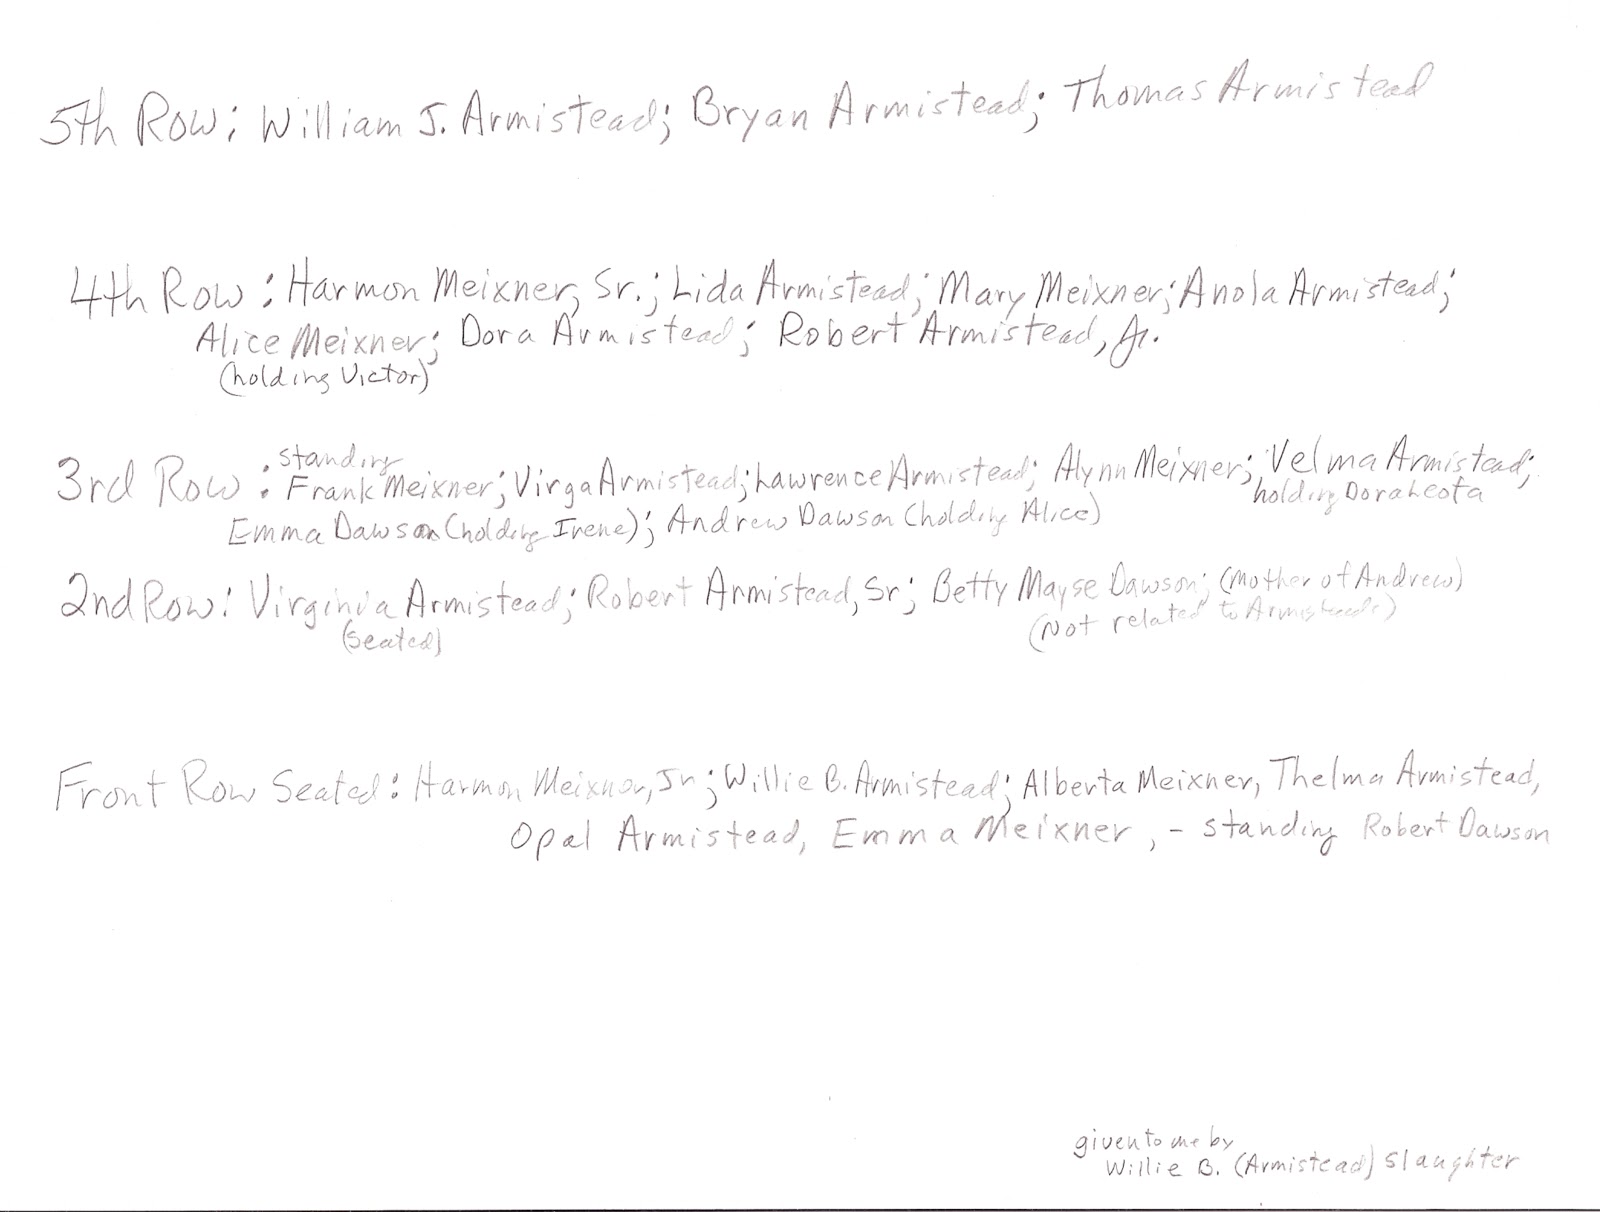 5th Row: William J. Armistead; Bryan Armistead; Thomas Armistead
4th Row: Harmon Meixner, Sr.; Lida Armistead; Mary Meixner; Anola Armistead;
Alice Meixner; Dora Armistead; Robert Armistead, Jr.
(holding Victor)
standing
3rd Row: Frank Meixner; Virga Armistead; Lawrence Armistead; Alynn Meixner; Velma Armistead;
holding Doraleota
Emma Dawson (holding Irene); Andrew Dawson (holding Alice)
2nd Row: Virginia Armistead; Robert Armistead, Sr; Betty Mayse Dawson; (Mother of Andrew)
(seated) (Not related to Armisteads)
Front Row Seated: Harmon Meixner, Jr; Willie B. Armistead; Alberta Meixner, Thelma Armistead,
Opal Armistead, Emma Meixner, - standing Robert Dawson
given to me by
Willie B. (Armistead) Slaughter